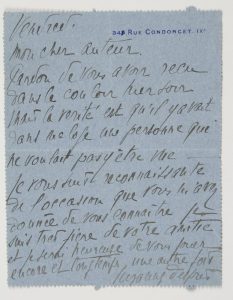 34B RUE CONDORCET. IXe
Vendredi.
mon cher auteur.
Pardon de vous avoir reçu
dans le couloir hier soir
mais la vérité est qu'il y avait
dans ma loge une personne qui
ne voulait pas être vue —
Je vous suis reconnaissante
de l'occasion que vous m'avez
donnée de vous connaître Je
suis très fière de votre amitié
et je serai heureuse de vous jouer
encore et longtemps, une autre fois
Suzanne Després